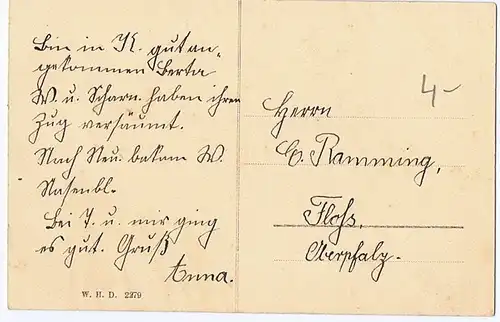 Bin in K. gut an-
gekommen Berta
W. u. Scharn. haben ihren
Zug versäumt.
Nach Neu. bekam W.
Nasenbl.
Bei T. u. mir ging
es gut. Gruß
Anna.
W. H. D. 2279
4-
Herrn
C. Ramming,
Floss,
Oberpfalz.